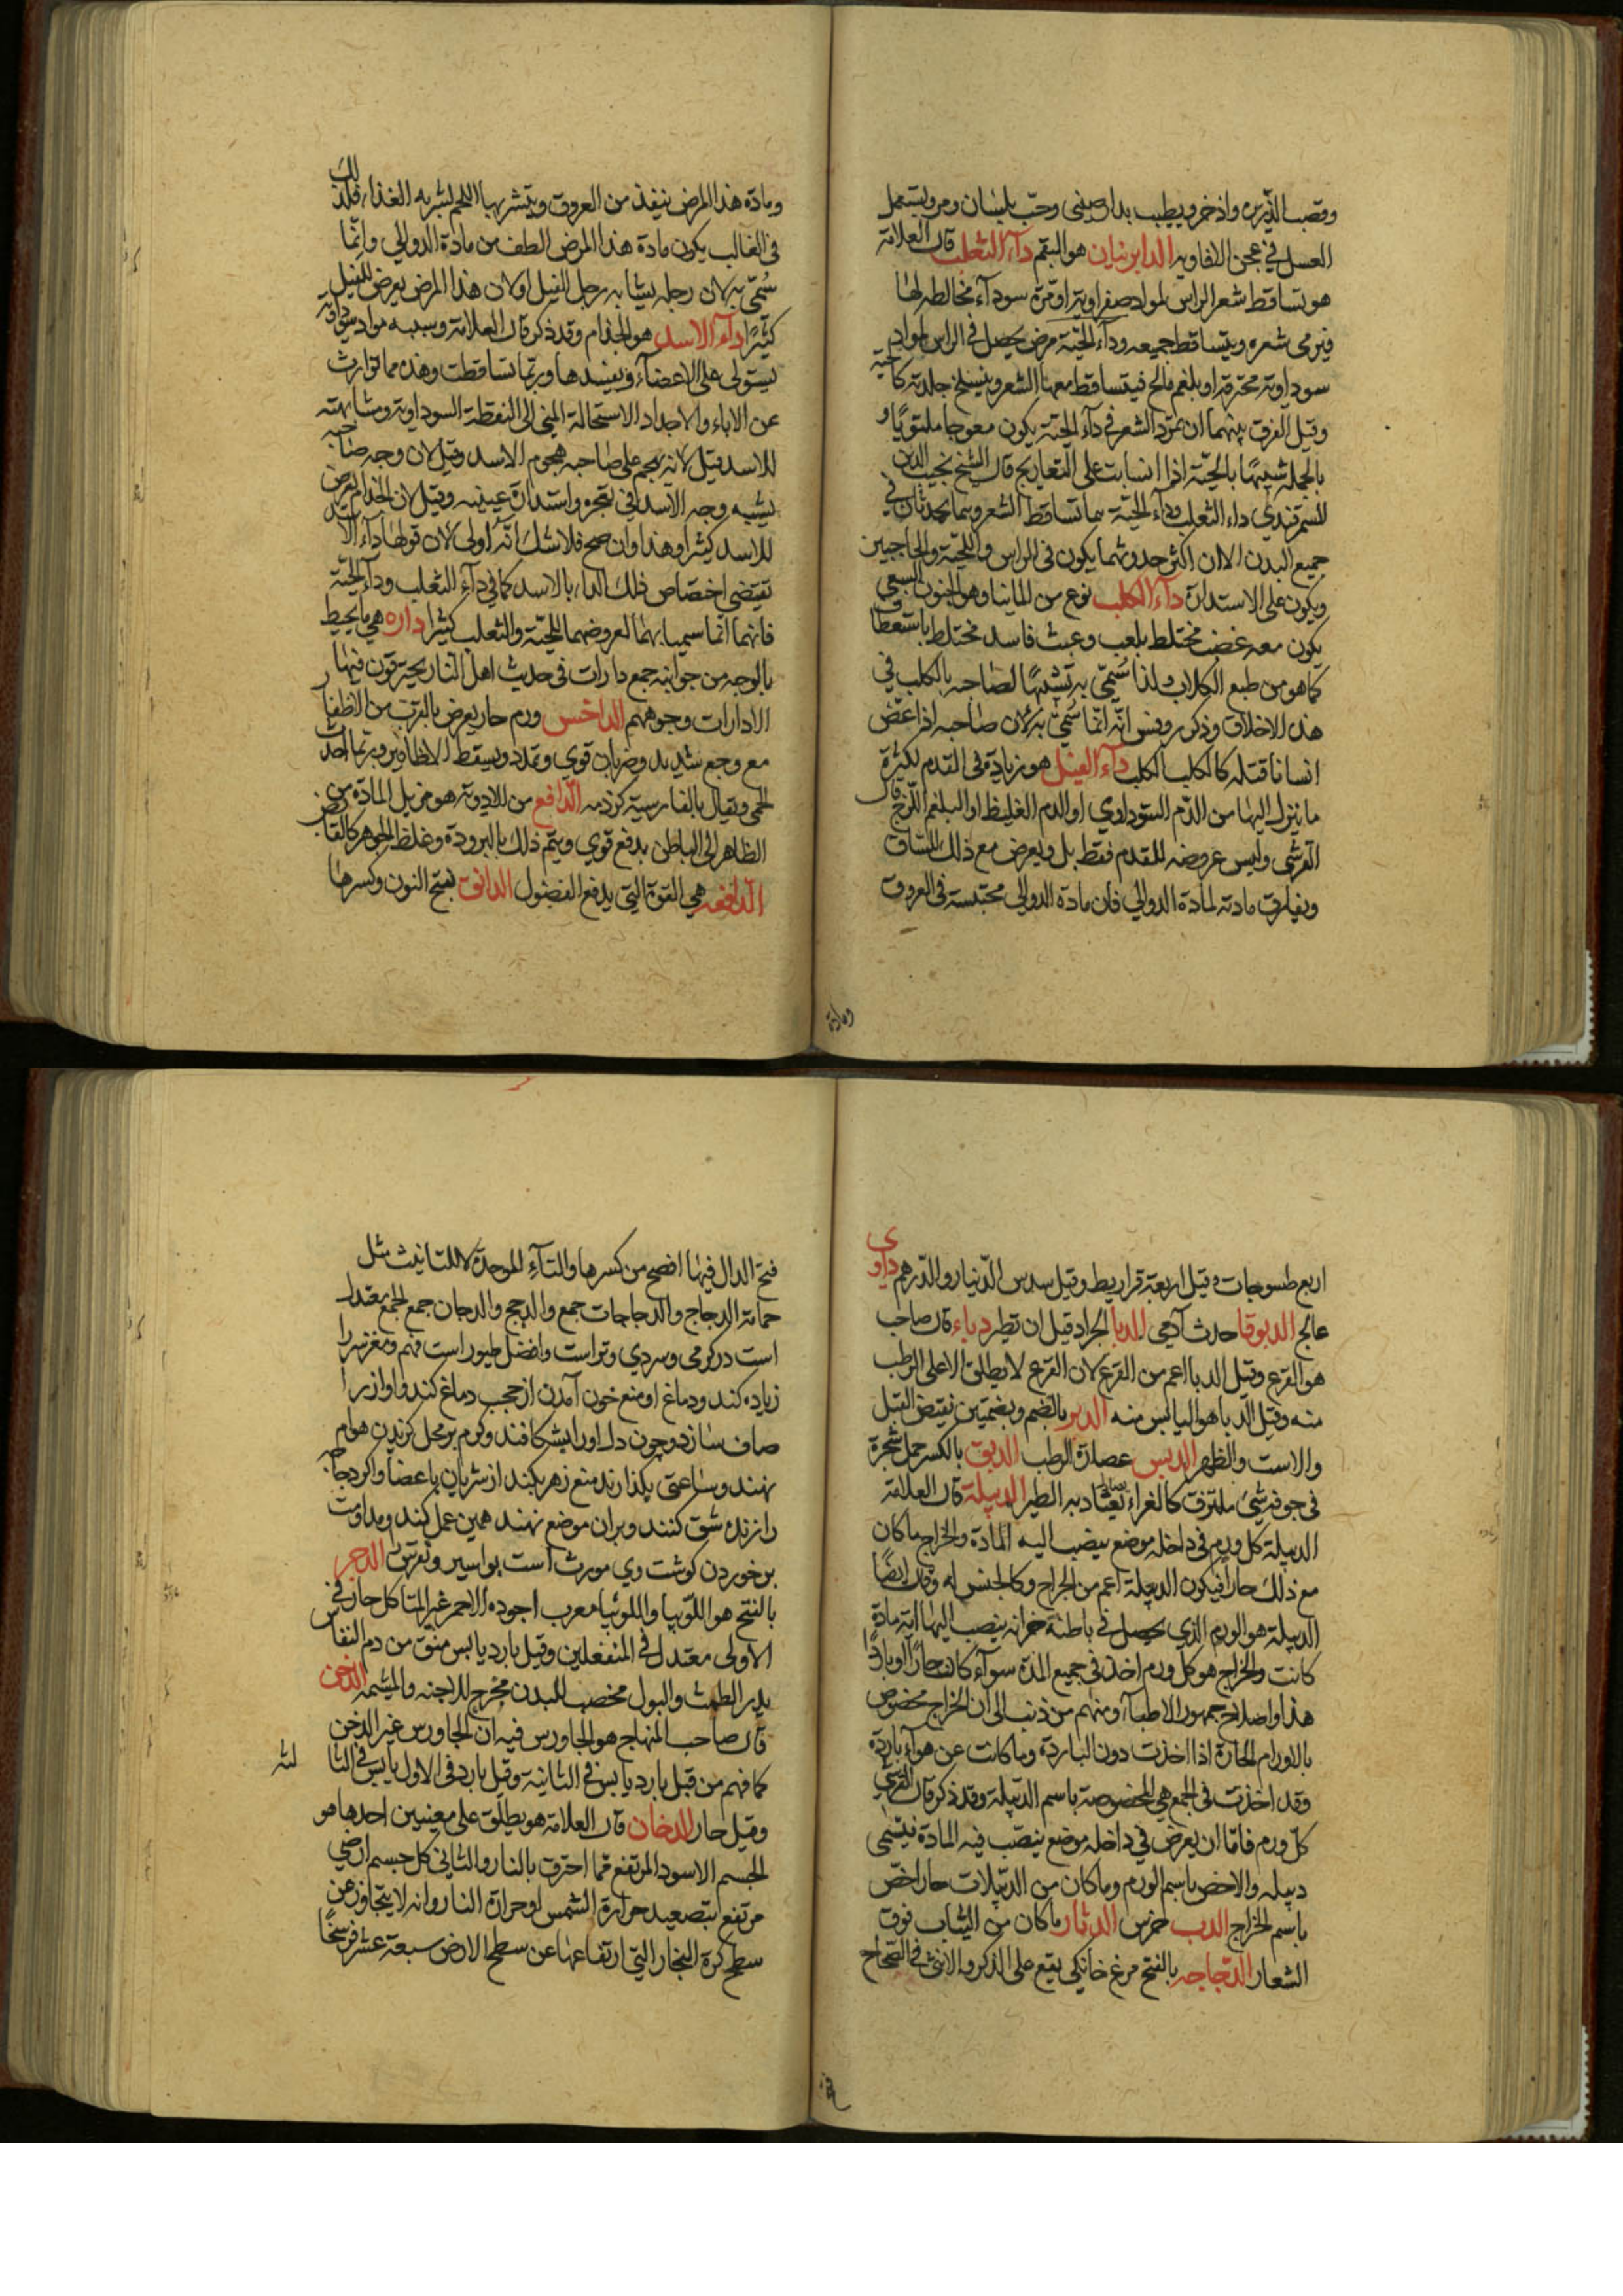 وقصب الذريره واذخر ويطيب بدارصينى وحب بلسان ومر ويستعمل
العسل في عجن الافاويه الدابرنيان هو البقم داء الثعلب قال العلامة
هو تساقط شعر الراس لمواد صفراوية او مرة سوداء مخالطه لها
فيرمى شعره ويتساقط جميعه وداء الحية مرض يحصل في الراس لمواد
سوداوية محترقة او بلغم مالح فيتساقط معها الشعر وينسلخ جلدته كالحية
وقيل الفرق بينهما ان تمرد الشعر في داء الحية يكون معوجا ملتويا و
بالجملة شبيها بالحية اذا انسابت على التعاريج قال الشيخ نجيب الدين
السمرقندي داء الثعلب وداء الحية هما تساقط الشعر وهما يحدثان في
جميع البدن الا ان اكثر حدوثهما يكون فى الراس واللحية والحاجبين
ويكون على الاستدارة داء الكلب نوع من المانيا وهو الجنون السبعي
يكون معه غضب مختلط بلعب وعبث فاسد مختلط باستعطاف
كما هو من طبع الكلاب ولذا سُمّي به تشبيها لصاحبه بالكلب في
هذه الاخلاق وذكر روفس انه انما سُمي به لان صاحبه اذا عض
انسانا قتله كالكلب الكلب داء الفيل هو زيادة في القدم لكثرة
ما ينزل اليها من الدم السوداوي او الدم الغليظ او البلغم اللزج قال
القرشى وليس عروضه للقدم فقط بل ويعرض مع ذلك للساق
ويفارق مادته لمادة الدوالي فان مادة الدوالي محتبسة فى العروق
ومادة
ومادة هذا المرض ينفذ من العروق ويتشربها اللحم لشربه الغذاء فلذلك
فى الغالب يكون مادة هذا المرض الطف من مادة الدوالي وانما
سُمّي به لان رجله يشابه رجل الفيل او لان هذا المرض يعرض للفيل
كثيرًا داء الاسد هو الجذام وقد ذكر قال العلامة وسببه مواد سوداوية
يستولى على الاعضاء ويفسدها وربما تساقطت وهذه مما توارث
عن الاباء والاجداد لاستحالة المني الى النقطة السوداوية ومشابهته
للاسد قيل لانه يهجم على صاحبه هجوم الاسد وقيل لان وجه صاحبه
يشبه وجه الاسد في تعجره واستدارة عينيه وقيل لان الجذام يعرض
للاسد كثيرا وهذا وان صح فلا شك انه اولى لان قولها داء الاسد
تقتضى اختصاص ذلك الداء بالاسد كما في داء الثعلب وداء الحية
فانهما انما سميا بهما لعروضهما للحية والثعلب كثيرا داره هي ما يحيط
بالوجه من جوانبه جمع دارات فى حديث اهل النار يحترقون فيها
الا دارات وجوههم الداخس ورم حار يعرض بالقرب من الاظفار
مع وجع شديد وضربان قوي وتمدد ويسقط الاظافير وربما احدث
الحمى ويقال بالفارسية كژدمه الدافع من الادوية هو مزيل المادة من
الظاهر الى الباطن بدفع قوي ويتم ذلك بالبرودة وغلظ الجوهر كالقابض
الدافعة هي القوة التي يدفع الفضول الدانق بفتح النون وكسرها
اربع طسوجات وقيل اربعة قراريط وقيل سدس الدينار والدرهم داوى
عالج الدبوقا حدث آدمي الدبا الجراد قبل ان تطير دباء قال صاحب
هو القرع وقيل الدبا اعم من القرع لان القرع لا يطلق الا على الرطب
منه وقيل الدبا هو اليابس منه الدبر بالضم وبضمتين نقيض القبل
والاست والظهر الدبس عصارة الرطب الدبق بالكسر حمل شجرة
في جوفه شئ ملتزق كالغراء يصاد به الطير الدبيلة قال العلامة
الدبيلة كل ورم في داخله موضع ينصب اليه المادة والخراج ما كان
مع ذلك حارا فيكون الدبيلة اعم من الخراج وكالجنس له وقال ايضًا
الدبيلة هو الورم الذي يحصل في باطنه خزانه ينصب اليها اية مادة
كانت والخراج هو كل ورم اخذ في جميع المدة سواء كان حارا او باردًا
هذا واصطلاح جمهور الاطباء ومنهم من ذهب الى ان الخراج مخصوص
بالاورام الحارة اذا اخذت دون الباردة وما كانت عن هواء باردة
وقد اخذت فى الجمع هي المخصوصة باسم الدبيلة وقد ذكر قال القرشى
كل ورم فاما ان يعرض في داخله موضع ينصب فيه المادة فيسمى
دبيله والاخص باسم الورم وما كان من الدبيلات حار اخص
باسم الخراج الدب خرس الدثار ما كان من الثياب فوق
الشعار الدجاجه بالفتح مرغ خانكى يقع على الذكر والانثى فى الصحاح
فتح
فتح الدال فيها افصح من كسرها والتاء للموحدة لا للتانيث مثل
حمامة الدجاج والدجاجات جمع والدجج والدجان جمع الجمع معتدل
است در كرمى وسردي وترا است وافضل طيور است فهم ومغز سر را
زياده كند ودماغ او منع خون آمدن از حجب دماغ كند واواز را
صاف سازد وچون دل او را بشكافند وكرم بر محل كزيدن هوام
نهند وساعتى بكذارند منع زهر بكند از شريان باعضا واكر دجاجه
را زنده شق كنند وبران موضع نهند همين عمل كند ومداومت
بر خوردن كوشت وي مورث است بواسير ونقرس الدجر
بالفتح هو اللوبيا واللوبيا معرب اجوده الاحمر غير المتاكل حار في
الاولى معتدل في المنفعلين وقيل بارد يابس منق من دم النفاس
يدر الطمث والبول مخصب للبدن مخرج للاجنه والمشيمه الدخن
قال صاحب المنهاج هو الجاورس فيه ان الجاورس غير الدخن
كما فهم من قبل بارد يابس في الثانية وقيل بارد فى الاول يابس في الثا
لثه
وقيل حار الدخان قال العلامة هو يطلق على معنيين احدها هو
الجسم الاسود المرتفع مما احترق بالنار والثاني كل جسم ارضي
مرتفع بتصعيد حرارة الشمس او حرارة النار وانه لا يتجاوز عن
سطح كرة البخار التي ارتفاعها عن سطح الارض سبعة عشر فرسخًا